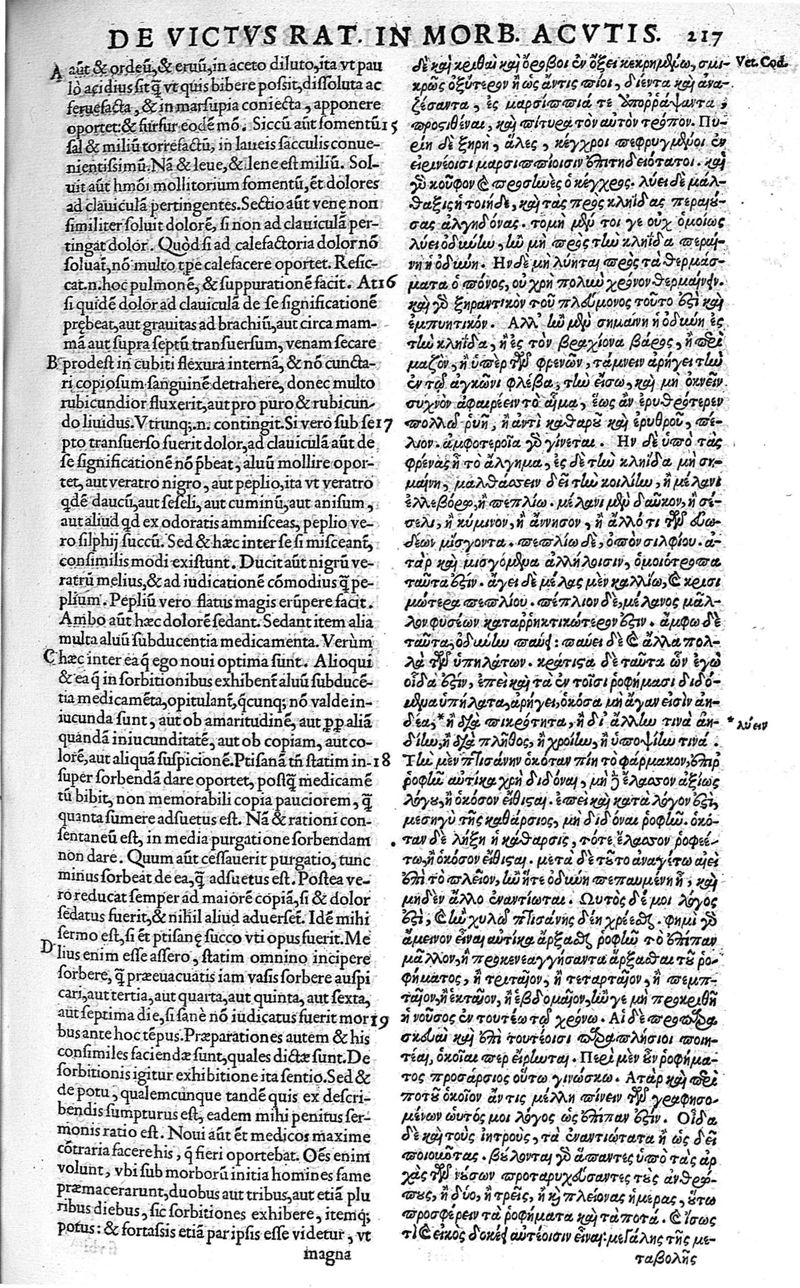 DE VICTVS RAT. IN MORB. ACVTIS. 217
A aūt & ordeū, & eruū, in aceto diluto, ita vt pau
lò acidius sit q̄ vt quis bibere possit, dissoluta ac
feruefacta, & in marsupia coniecta, apponere
oportet: & furfur eodē mō. Siccū aūt fomentū 15
sal & miliū torrefactū, in laneis sacculis conue-
nientissimū. Nā & leue, & lene est miliū. Sol-
uit aūt hmōi mollitorium fomentū, et dolores
ad clauiculā pertingentes. Sectio aūt venę non
similiter soluit dolorē, si non ad clauiculā per-
tingat dolor. Quòd si ad calefactoria dolor nō
soluat̄, nō multo tp̄e calefacere oportet. Resic-
cat.n.hoc pulmonē, & suppurationē facit. At 16
si quidē dolor ad clauiculā de se significationē
prębeat, aut grauitas ad brachiū, aut circa mam-
mā aut supra septū transuersum, venam secare
B prodest in cubiti flexura internā, & nō cuncta-
ri copiosum sanguinē detrahere, donec multo
rubicundior fluxerit, aut pro puro & rubicun-
do liuidus. Vtrunq;.n. contingit. Si vero sub se 17
pto transuerso fuerit dolor, ad clauiculā aūt de
se significationē nō p̄beat, aluū mollire opor-
tet, aut veratro nigro, aut peplio, ita vt veratro
q̄dē daucū, aut seseli, aut cuminū, aut anisum,
aut aliud q̄d ex odoratis ammisceas, peplio ve-
ro silphij succū. Sed & hæc inter se si misceant̄,
consimilis modi existunt. Ducit aūt nigrū ve-
ratrū melius, & ad iudicationē cōmodius q̄ pe-
plium. Pepliū vero flatus magis erūpere facit.
Ambo aūt hæc dolorē sedant. Sedant item alia
multa aluū subducentia medicamenta. Verùm
C hæc inter ea q̄ ego noui optima sunt. Alioqui
& ea q̄ in sorbitionibus exhibent̄ aluū subducē-
tia medicamēta, opitulant̄, q̄cunq; nō valde in-
iucunda sunt, aut ob amaritudinē, aut ꝓpt̄ aliā
quandā iniucunditatē, aut ob copiam, aut co-
lorē, aut aliquā suspicionē. Ptisanā tn̄ statim in- 18
super sorbendā dare oportet, postq̄ medicamē
tū bibit, non memorabili copia pauciorem, q̄
quanta sumere adsuetus est. Nā & rationi con-
sentaneū est, in media purgatione sorbendam
non dare. Quum aūt cessauerit purgatio, tunc
minus sorbeat de ea, q̄ adsuetus est. Postea ve-
ro reducat semper ad maiorē copiā, si & dolor
sedatus fuerit, & nihil aliud aduerset̄. Idē mihi
sermo est, si et ptisanę succo vti opus fuerit. Me
D lius enim esse assero, statim omnino incipere
sorbere, q̄ præeuacuatis iam vasis sorbere auspi
cari, aut tertia, aut quarta, aut quinta, aut sexta,
aut septima die, si sanè nō iudicatus fuerit mor 19
bus ante hoc tēpus. Præparationes autem & his
consimiles faciendæ sunt, quales dictæ sunt. De
sorbitionis igitur exhibitione ita sentio. Sed &
de potu, qualemcunque tandē quis ex descri-
bendis sumpturus est, eadem mihi penitus ser-
monis ratio est. Noui aūt et medicos maxime
cōtraria facere his, q̄ fieri oportebat. Oēs enim
volunt, vbi sub morborū initia homines fame
præmacerarunt, duobus aut tribus, aut etiā plu
ribus diebus, sic sorbitiones exhibere, itemq;
potus: & fortassis etiā par ipsis esse videtur, vt
magna
δὲ καὶ κριθαὶ καὶ ὄροβοι ἐν ὄξει κεκρημένῳ, σμι- Vet. Cod.
κρῶς ὀξύτερον ἢ ὡς ἄν τις πίοι, διέντα καὶ ἀνα-
ζέσαντα, ἐς μαρσίππιά τε ὑποῤῥάψαντα,
προςτιθέναι, καὶ πίτυρα τὸν αὐτὸν τρόπον. Πυ-
ρίη δὲ ξηρὴ, ἅλες, κέγχροι πεφρυγμένοι ἐν
εἰρινέοισι μαρσιππίοισιν ἐπιτηδειότατοι. καὶ
γὰρ κοῦφον καὶ προσηνὲς ὁ κέγχρος. λύει δὲ μάλ-
θαξις ἡ τοιήδε, καὶ τὰς πρὸς κληῖδας περαιού-
σας ἀλγηδόνας. τομὴ μέν τοι γε οὐχ ὁμοίως
λύει ὀδύνην, ἢν μὴ πρὸς τὴν κληῖδα περαί-
νῃ ἡ ὀδύνη. Ἢν δὲ μὴ λύηται πρὸς τὰ θερμάσ-
ματα ὁ πόνος, οὐ χρὴ πολὺν χρόνον θερμαίνειν.
καὶ γὰρ ξηραντικὸν τοῦ πλεύμονος τοῦτο ἐστὶ καὶ
ἐμπυητικόν. Ἀλλ᾽ ἢν μὲν σημαίνῃ ἡ ὀδύνη ἐς
τὴν κληῖδα, ἢ ἐς τὸν βραχίονα βάρος, ἢ περὶ
μαζὸν, ἢ ὑπὲρ τῶν φρενῶν, τάμνειν ἀρήγει τὴν
ἐν τῷ ἀγκῶνι φλέβα, τὴν εἴσω, καὶ μὴ ὀκνεῖν
συχνὸν ἀφαιρέειν τὸ αἷμα, ἕως ἂν ἐρυθρότερον
πολλῷ ῥυῇ, ἢ ἀντὶ καθαροῦ καὶ ἐρυθροῦ, πέ-
λιον. ἀμφοτεροῖα γὰρ γίνεται. Ἢν δὲ ὑπὸ τὰς
φρένας ᾖ τὸ ἄλγημα, ἐς δὲ τὴν κληῖδα μὴ ση-
μαίνῃ, μαλθάσσειν δεῖ τὴν κοιλίην, ἢ μέλανι
ἑλλεβόρῳ, ἢ πεπλίῳ. μέλανι μὲν δαῦκον, ἢ σέ-
σελι, ἢ κύμινον, ἢ ἄννησον, ἢ ἄλλό τι τῶν εὐω-
δέων μίσγοντα. πεπλίῳ δὲ, ὀπὸν σιλφίου. ἀ-
τὰρ καὶ μισγόμενα ἀλλήλοισιν, ὁμοιότροπα
ταῦτα ἐστίν. ἄγει δὲ μέλας μὲν καλλίω, καὶ κρισι
μώτερα πεπλίου. πέπλιον δὲ, μέλανος μᾶλ-
λον φυσέων καταῤῥηκτικώτερον ἐστίν. ἄμφω δὲ
ταῦτα, ὀδύνην παύει: παύει δὲ καὶ ἄλλα πολ-
λὰ τῶν ὑπηλάτων. κράτιστα δὲ ταῦτα ὧν ἐγὼ
οἶδα ἐστὶν, ἐπεὶ καὶ τὰ ἐν τοῖσι ροφήμασι διδό-
μενα ὑπήλατα, ἀρήγει, ὁκόσα μὴ ἄγαν εἰσὶν ἀη-
δέα,* ἢ διὰ πικρότητα, ἢ δι᾽ ἄλλην τινὰ ἀη- * λύειν
δίην, ἢ διὰ πλῆθος, ἢ χροίην, ἢ ὑποψίην τινά.
Τὴν μὲν πτισάνην ὁκόταν πίῃ τὸ φάρμακον, ἐπιρ
ροφεῖν αὐτίκα χρὴ διδόναι, μή τι ἔλασσον ἀξίως
λόγου, ἢ ὁκόσον εἴθισται. ἐπεὶ καὶ κατὰ λόγον ἐστὶ,
μεσηγὺ τῆς καθάρσιος, μὴ διδόναι ροφεῖν. ὁκό-
ταν δὲ λήξῃ ἡ κάθαρσις, τότε ἔλασσον ροφεέ-
τω, ἢ ὁκόσον εἴθισται. μετὰ δὲ τοῦτο ἀναγέτω αἰεὶ
ἐπὶ τὸ πλεῖον, ἢν ἥ τε ὀδύνη πεπαυμένη ᾖ, καὶ
μηδὲν ἄλλο ἐναντιῶται. Ὡυτὸς δέ μοι λόγος
ἐστὶ, καὶ ἢν χυλῷ πτισάνης δέῃ χρέεσθαι. φημὶ γὰρ
ἄμεινον εἶναι αὐτίκα ἄρξασθαι ροφεῖν τὸ ἐπίπαν
μᾶλλον, ἢ προκενεαγγήσαντα ἄρξασθαι τοῦ ρο-
φήματος, ἢ τριταῖον, ἢ τεταρταῖον, ἢ πεμπ-
ταῖον, ἢ ἑκταῖον, ἢ ἑβδομαῖον, ἤν γε μὴ προκριθῇ
ἡ νοῦσος ἐν τουτέῳ τῷ χρόνῳ. Αἱ δὲ προπαρα
σκευαὶ καὶ ἐπὶ τουτέοισι παραπλήσιοι ποιη-
τέαι, ὁκοῖαι περ εἴρηνται. Περὶ μὲν οὖν ροφήμα-
τος προσάρσιος οὕτω γινώσκω. Ἀτὰρ καὶ περὶ
ποτοῦ ὁκοῖον ἄν τις μέλλῃ πίνειν τῶν γραφησο-
μένων ωὑτός μοι λόγος ὡς ἐπίπαν ἐστίν. Οἶδα
δὲ καὶ τοὺς ἰητροὺς, τὰ ἐναντιώτατα ἢ ὡς δεῖ
ποιοῦντας. βούλονται γὰρ ἅπαντες ὑπὸ τὰς ἀρ
χὰς τῶν νούσων προταρυχεύσαντες τοὺς ἀνθρώ-
πους, ἢ δύο, ἢ τρεῖς, ἢ καὶ πλείονας ἡμέρας, οὕτω
προσφέρειν τὰ ροφήματα καὶ τὰ ποτά. καὶ ἴσως
τὶ καὶ εἰκὸς δοκέει αὐτέοισιν εἶναι μεγάλης τῆς με-
ταβολῆς